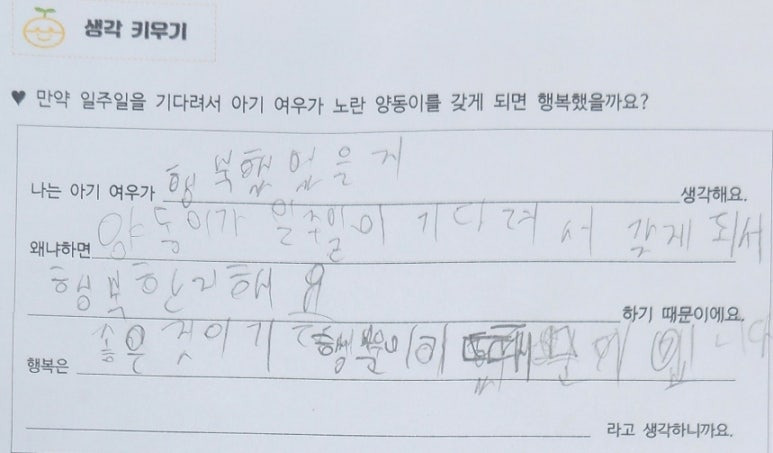 생각 키우기
♥ 만약 일주일을 기다려서 아기 여우가 노란 양동이를 갖게 되면 행복했을까요?
나는 아기 여우가 행복했없을거 생각해요.
왜냐하면 양동이가 일주일이 기다려서 갖게 되서
행복한거해요 하기 때문이에요.
행복은 좋은 것이기 행복이 입니다
라고 생각하니까요.